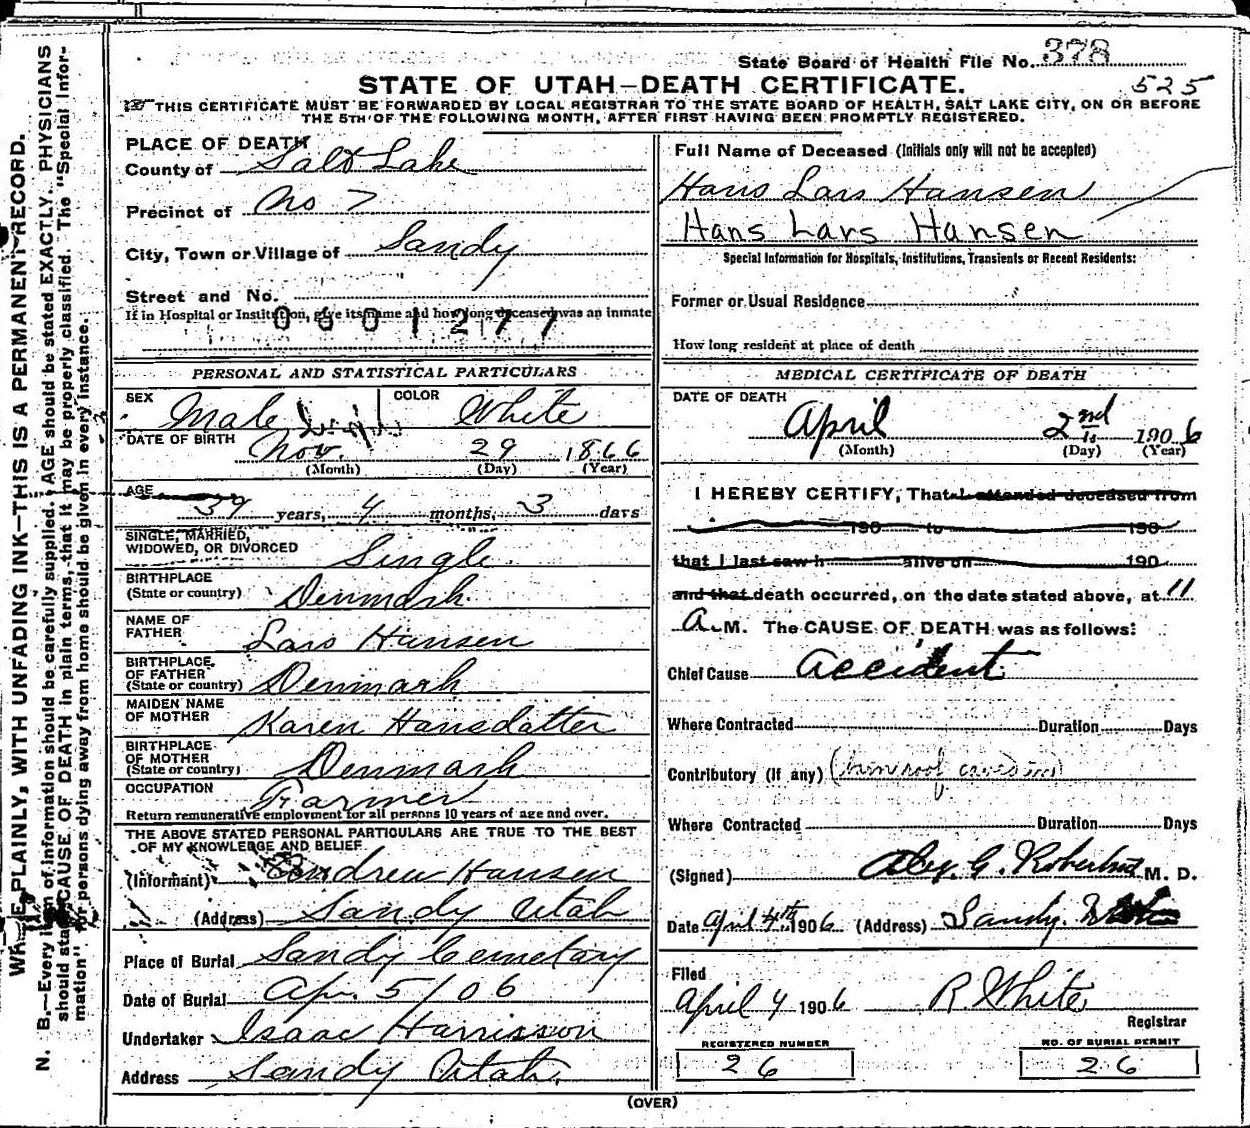 State Board of Health File No. 378
STATE OF UTAH—DEATH CERTIFICATE. 525
THIS CERTIFICATE MUST BE FORWARDED BY LOCAL REGISTRAR TO THE STATE BOARD OF HEALTH, SALT LAKE CITY, ON OR BEFORE
THE 5TH OF THE FOLLOWING MONTH, AFTER FIRST HAVING BEEN PROMPTLY REGISTERED.
PLACE OF DEATH
County of Salt Lake
Precinct of No 7
City, Town or Village of Sandy
Street and No.
If in Hospital or Institution, give its name and how long deceased was an inmate
0601277
PERSONAL AND STATISTICAL PARTICULARS
SEX Male COLOR White
DATE OF BIRTH Nov. 29 1866
(Month) (Day) (Year)
AGE 39 years, 4 months, 3 days
SINGLE, MARRIED,
WIDOWED, OR DIVORCED Single
BIRTHPLACE
(State or country) Denmark
NAME OF
FATHER Lars Hansen
BIRTHPLACE
OF FATHER
(State or country) Denmark
MAIDEN NAME
OF MOTHER Karen Hansdatter
BIRTHPLACE
OF MOTHER
(State or country) Denmark
OCCUPATION Farmer
Return remunerative employment for all persons 10 years of age and over.
THE ABOVE STATED PERSONAL PARTICULARS ARE TRUE TO THE BEST
OF MY KNOWLEDGE AND BELIEF
(Informant) Andrew Hansen
(Address) Sandy Utah
Place of Burial Sandy Cemetary
Date of Burial Apr. 5/06
Undertaker Isaac Harrisson
Address Sandy Utah.
Full Name of Deceased (Initials only will not be accepted)
Hans Lars Hansen
Hans Lars Hansen
Special Information for Hospitals, Institutions, Transients or Recent Residents:
Former or Usual Residence
How long resident at place of death
MEDICAL CERTIFICATE OF DEATH
DATE OF DEATH
April 2nd 1906
(Month) (Day) (Year)
I HEREBY CERTIFY, That I attended deceased from
190 to 190
that I last saw h alive on 190
and that death occurred, on the date stated above, at 11
A.M. The CAUSE OF DEATH was as follows:
Chief Cause accident
Where Contracted Duration Days
Contributory (if any) (barn roof caved in)
Where Contracted Duration Days
(Signed) Alex. G. M. D.
Date April 4th 1906 (Address) Sandy. Utah
Filed
April 4 1906 R. White
Registrar
REGISTERED NUMBER NO. OF BURIAL PERMIT
26 26
(OVER)
WRITE PLAINLY, WITH UNFADING INK—THIS IS A PERMANENT RECORD.
N. B.—Every item of information should be carefully supplied. AGE should be stated EXACTLY. PHYSICIANS
should state CAUSE OF DEATH in plain terms, that it may be properly classified. The "Special Infor-
mation" for persons dying away from home should be given in every instance.